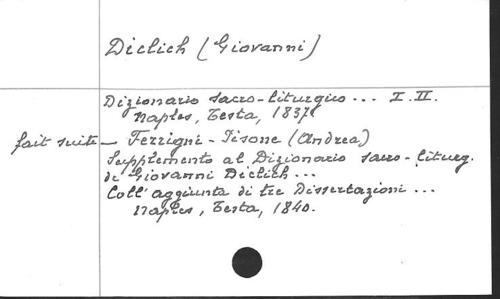 Diclich (Giovanni)
Dizionario sacro-liturgico ... I. II.
Naples, Testa, 1837
fait suite — Ferrigni-Pisone (Andrea)
Supplemento al Dizionario sacro-liturg.
di Giovanni Diclich ...
Coll' aggiunta di tre Dissertazioni ...
Naples, Testa, 1840.